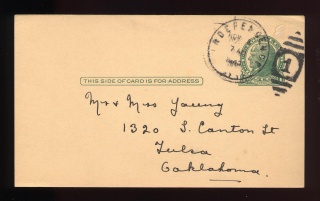 THIS SIDE OF CARD IS FOR ADDRESS
Mr & Mrs Young
1320 S. Canton St
Tulsa
Oaklahoma.